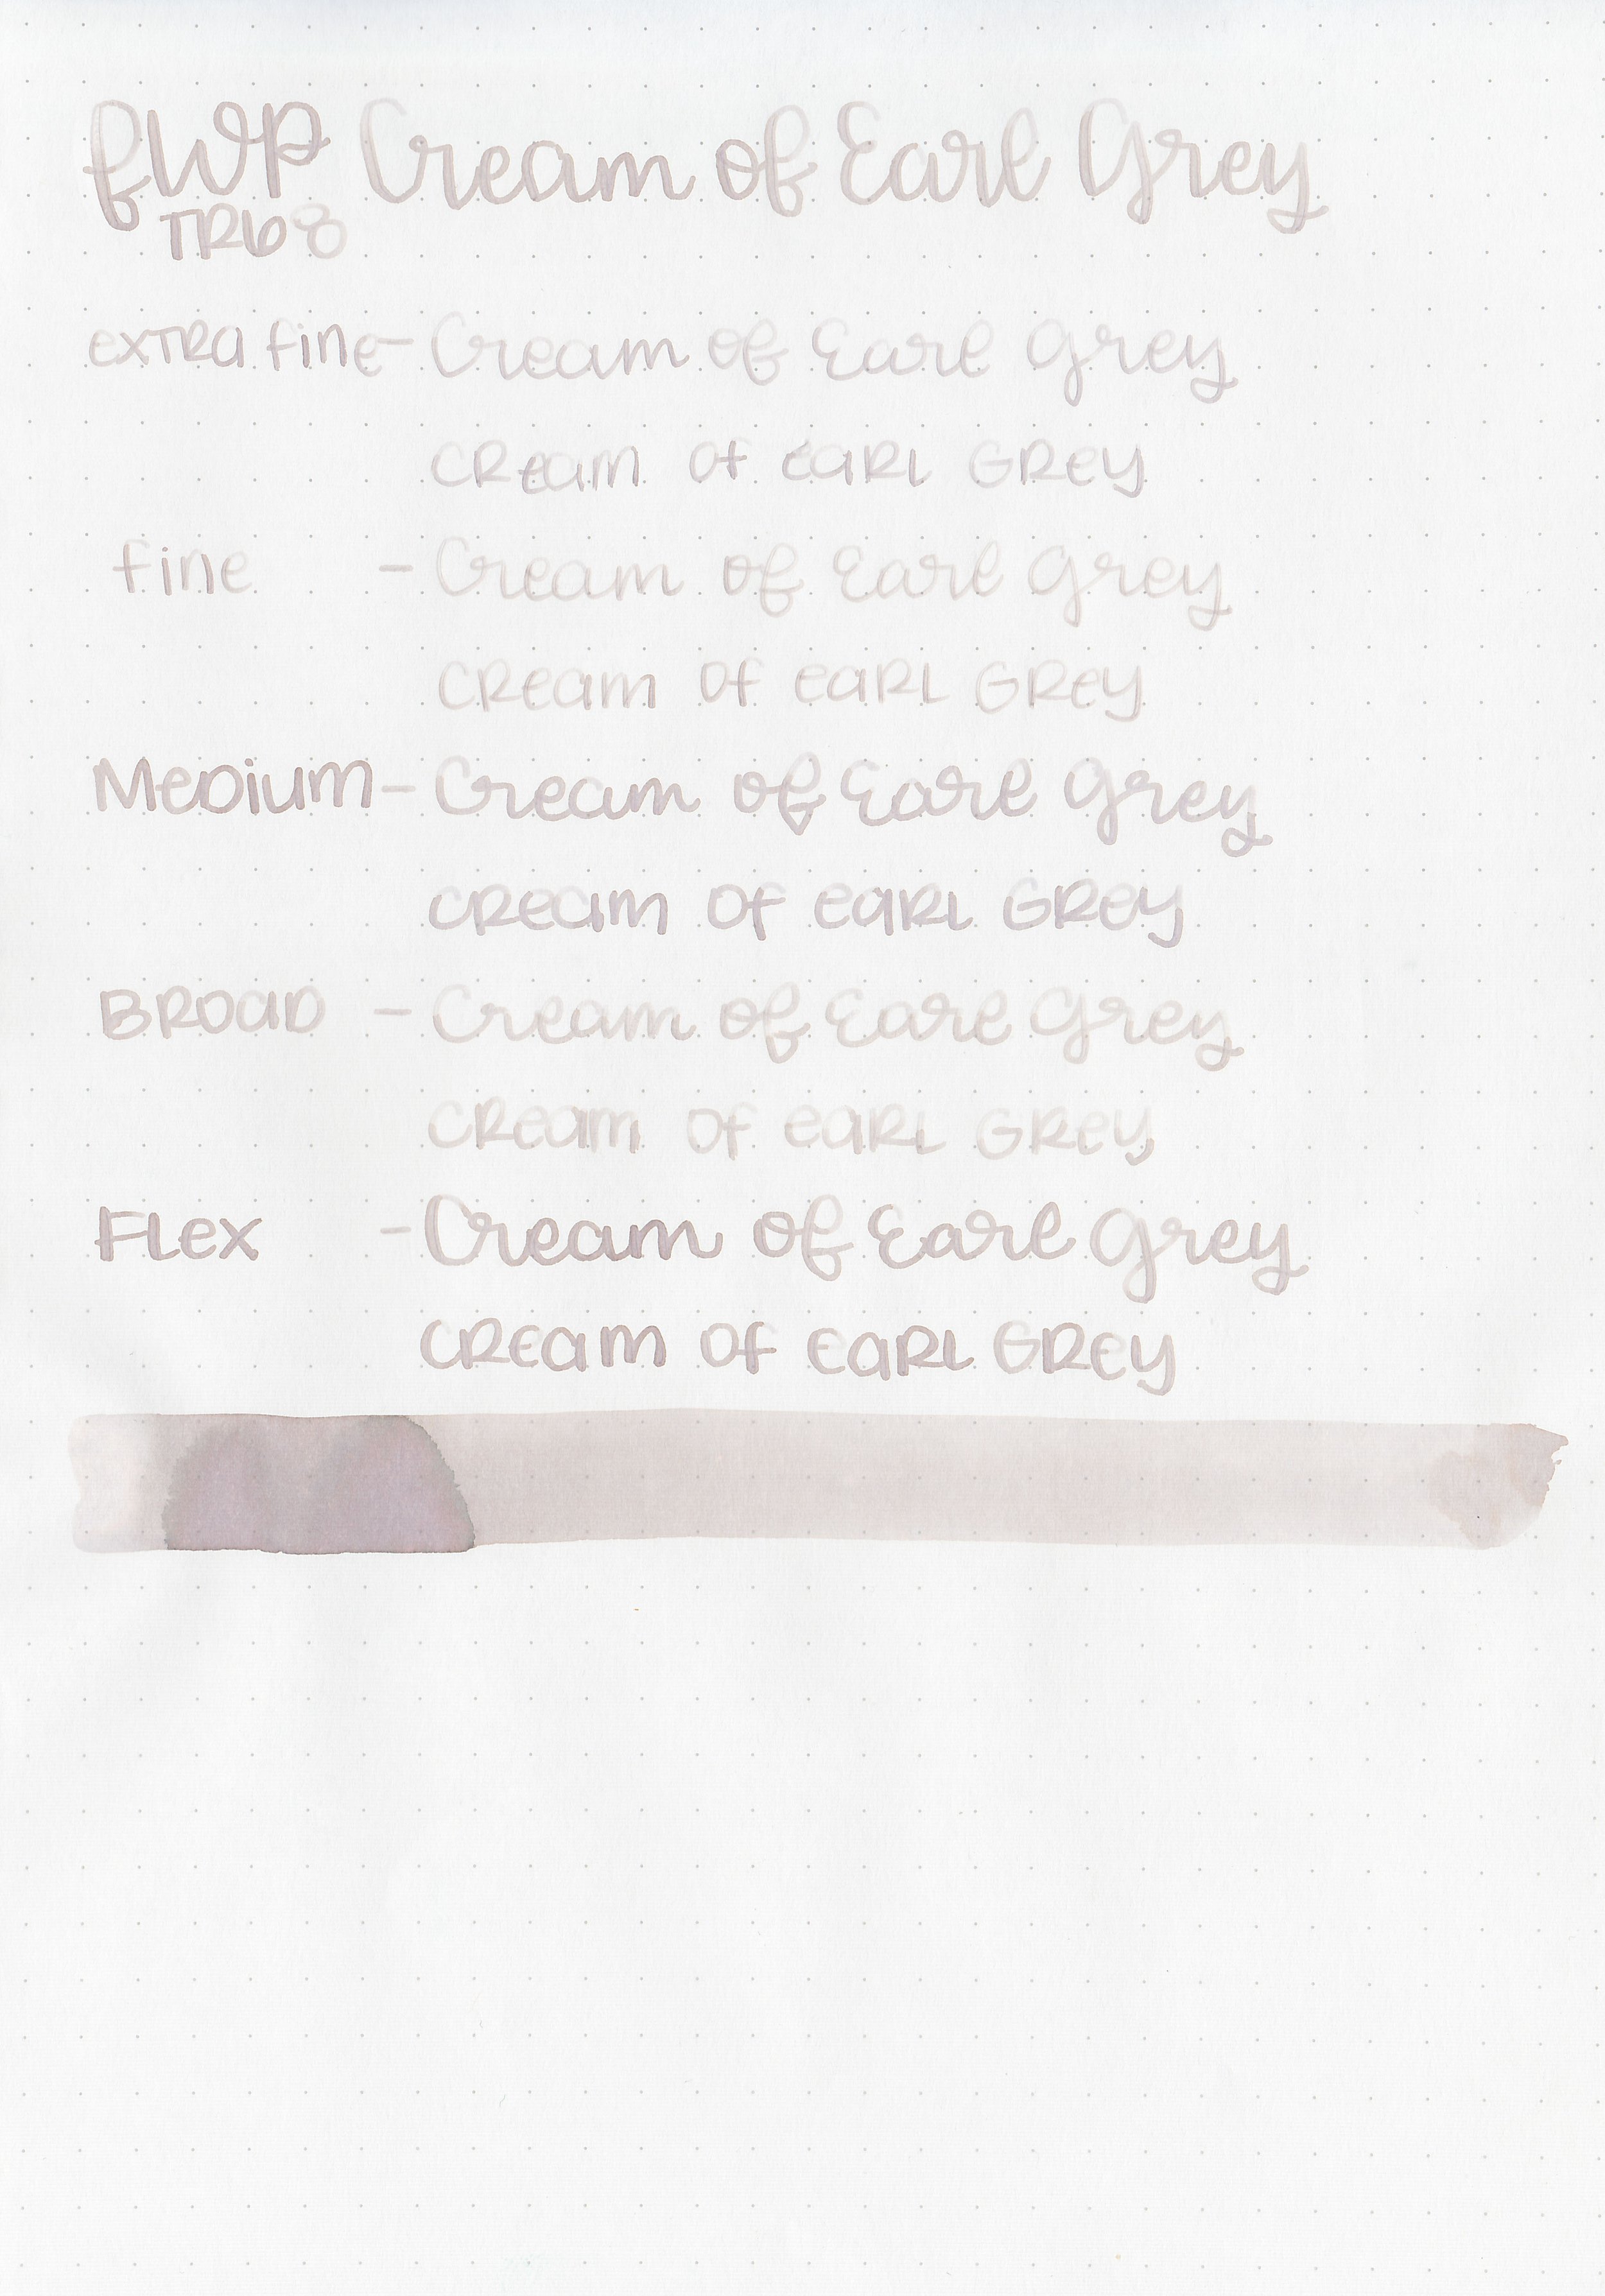 fWP Cream of Earl Grey
TR68
extra fine - Cream of Earl Grey
CReam Of EARL GREY
fine - Cream of Earl Grey
CReam Of eaRL GREY
Medium - Cream of Earl Grey
CReam Of eaRL GREY
BROaD - Cream of Earl Grey
CReam Of eaRL GREY
FLex - Cream of Earl Grey
CREam Of EaRL GREY